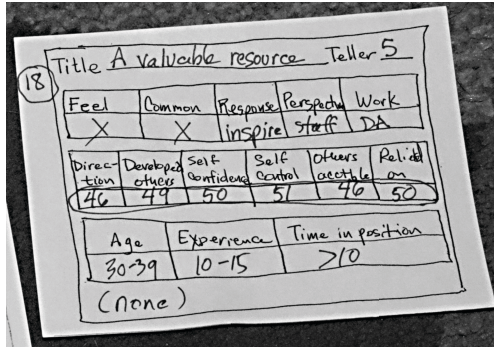 18
Title A valuable resource Teller 5
Feel Common Response Perspective Work
X X inspire staff DA
Direc-tion Developed others Self Confidence Self Control Others accntble Relied on
46 49 50 51 46 50
Age Experience Time in position
30-39 10-15 >10
(none)